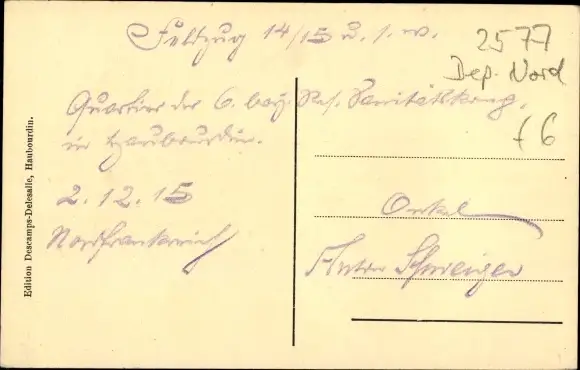 Feldzug 14/15 u. s. w.
2577
Dep. Nord
f 6
Quartier der 6. bay. Res. Sanitätskomp.
in Haubourdin.
2.12.15
Nordfrankreich
Onkel
Anton Schweiger
Edition Descamps-Delesalle, Haubourdin.